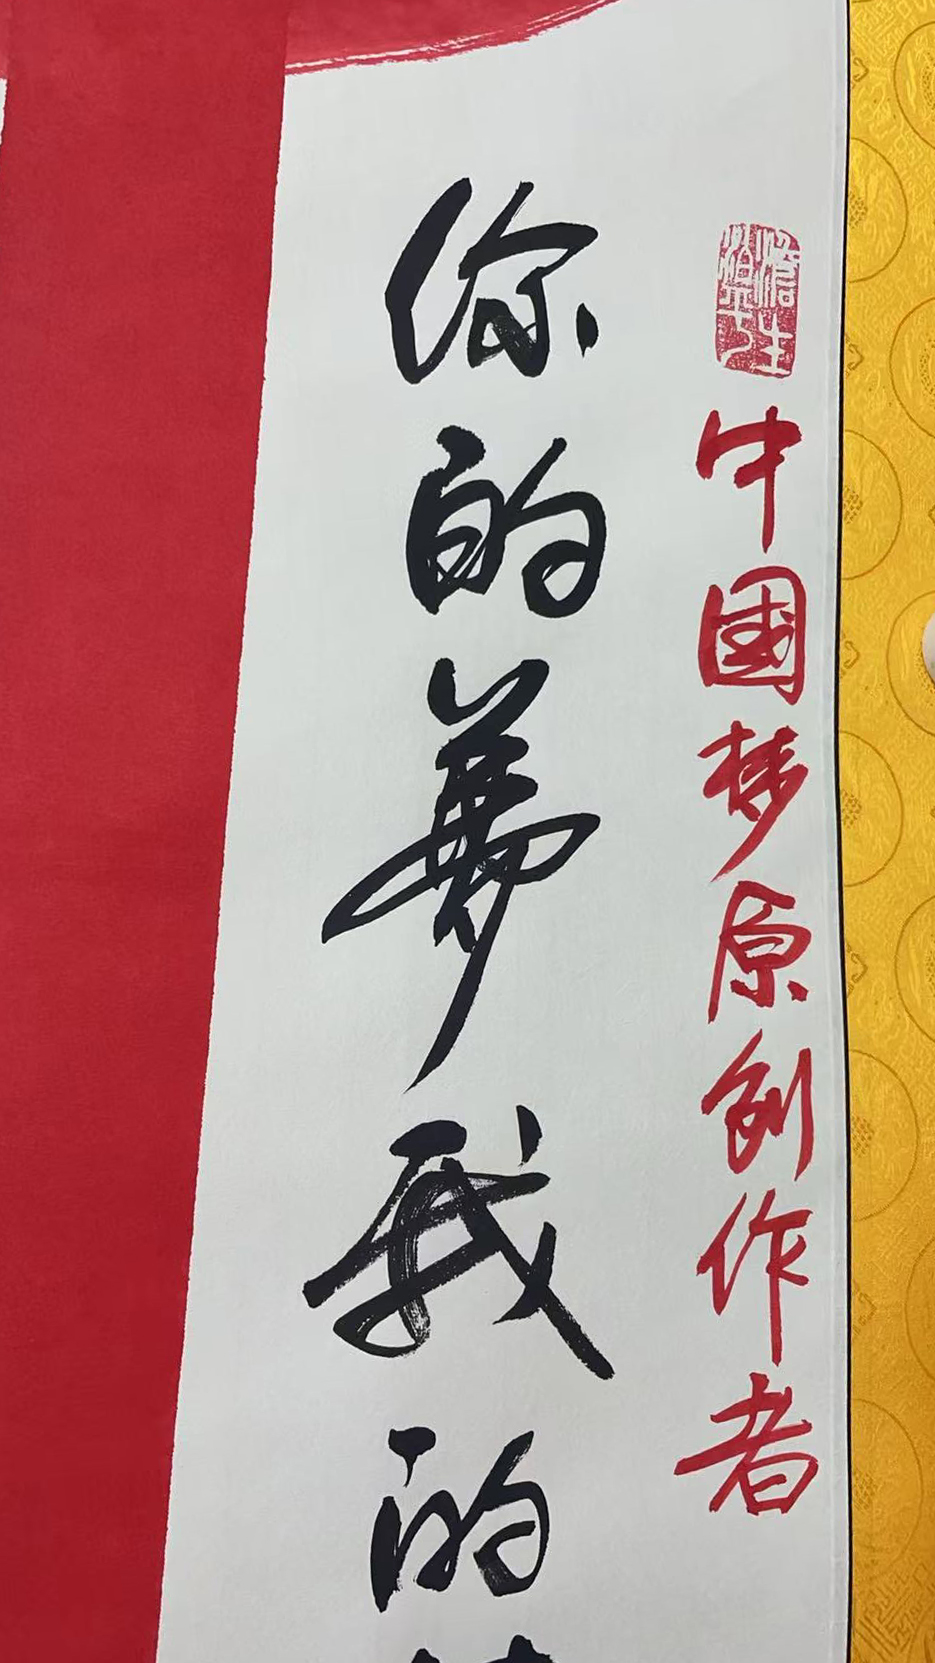 中國梦原创作者
你的夢我的